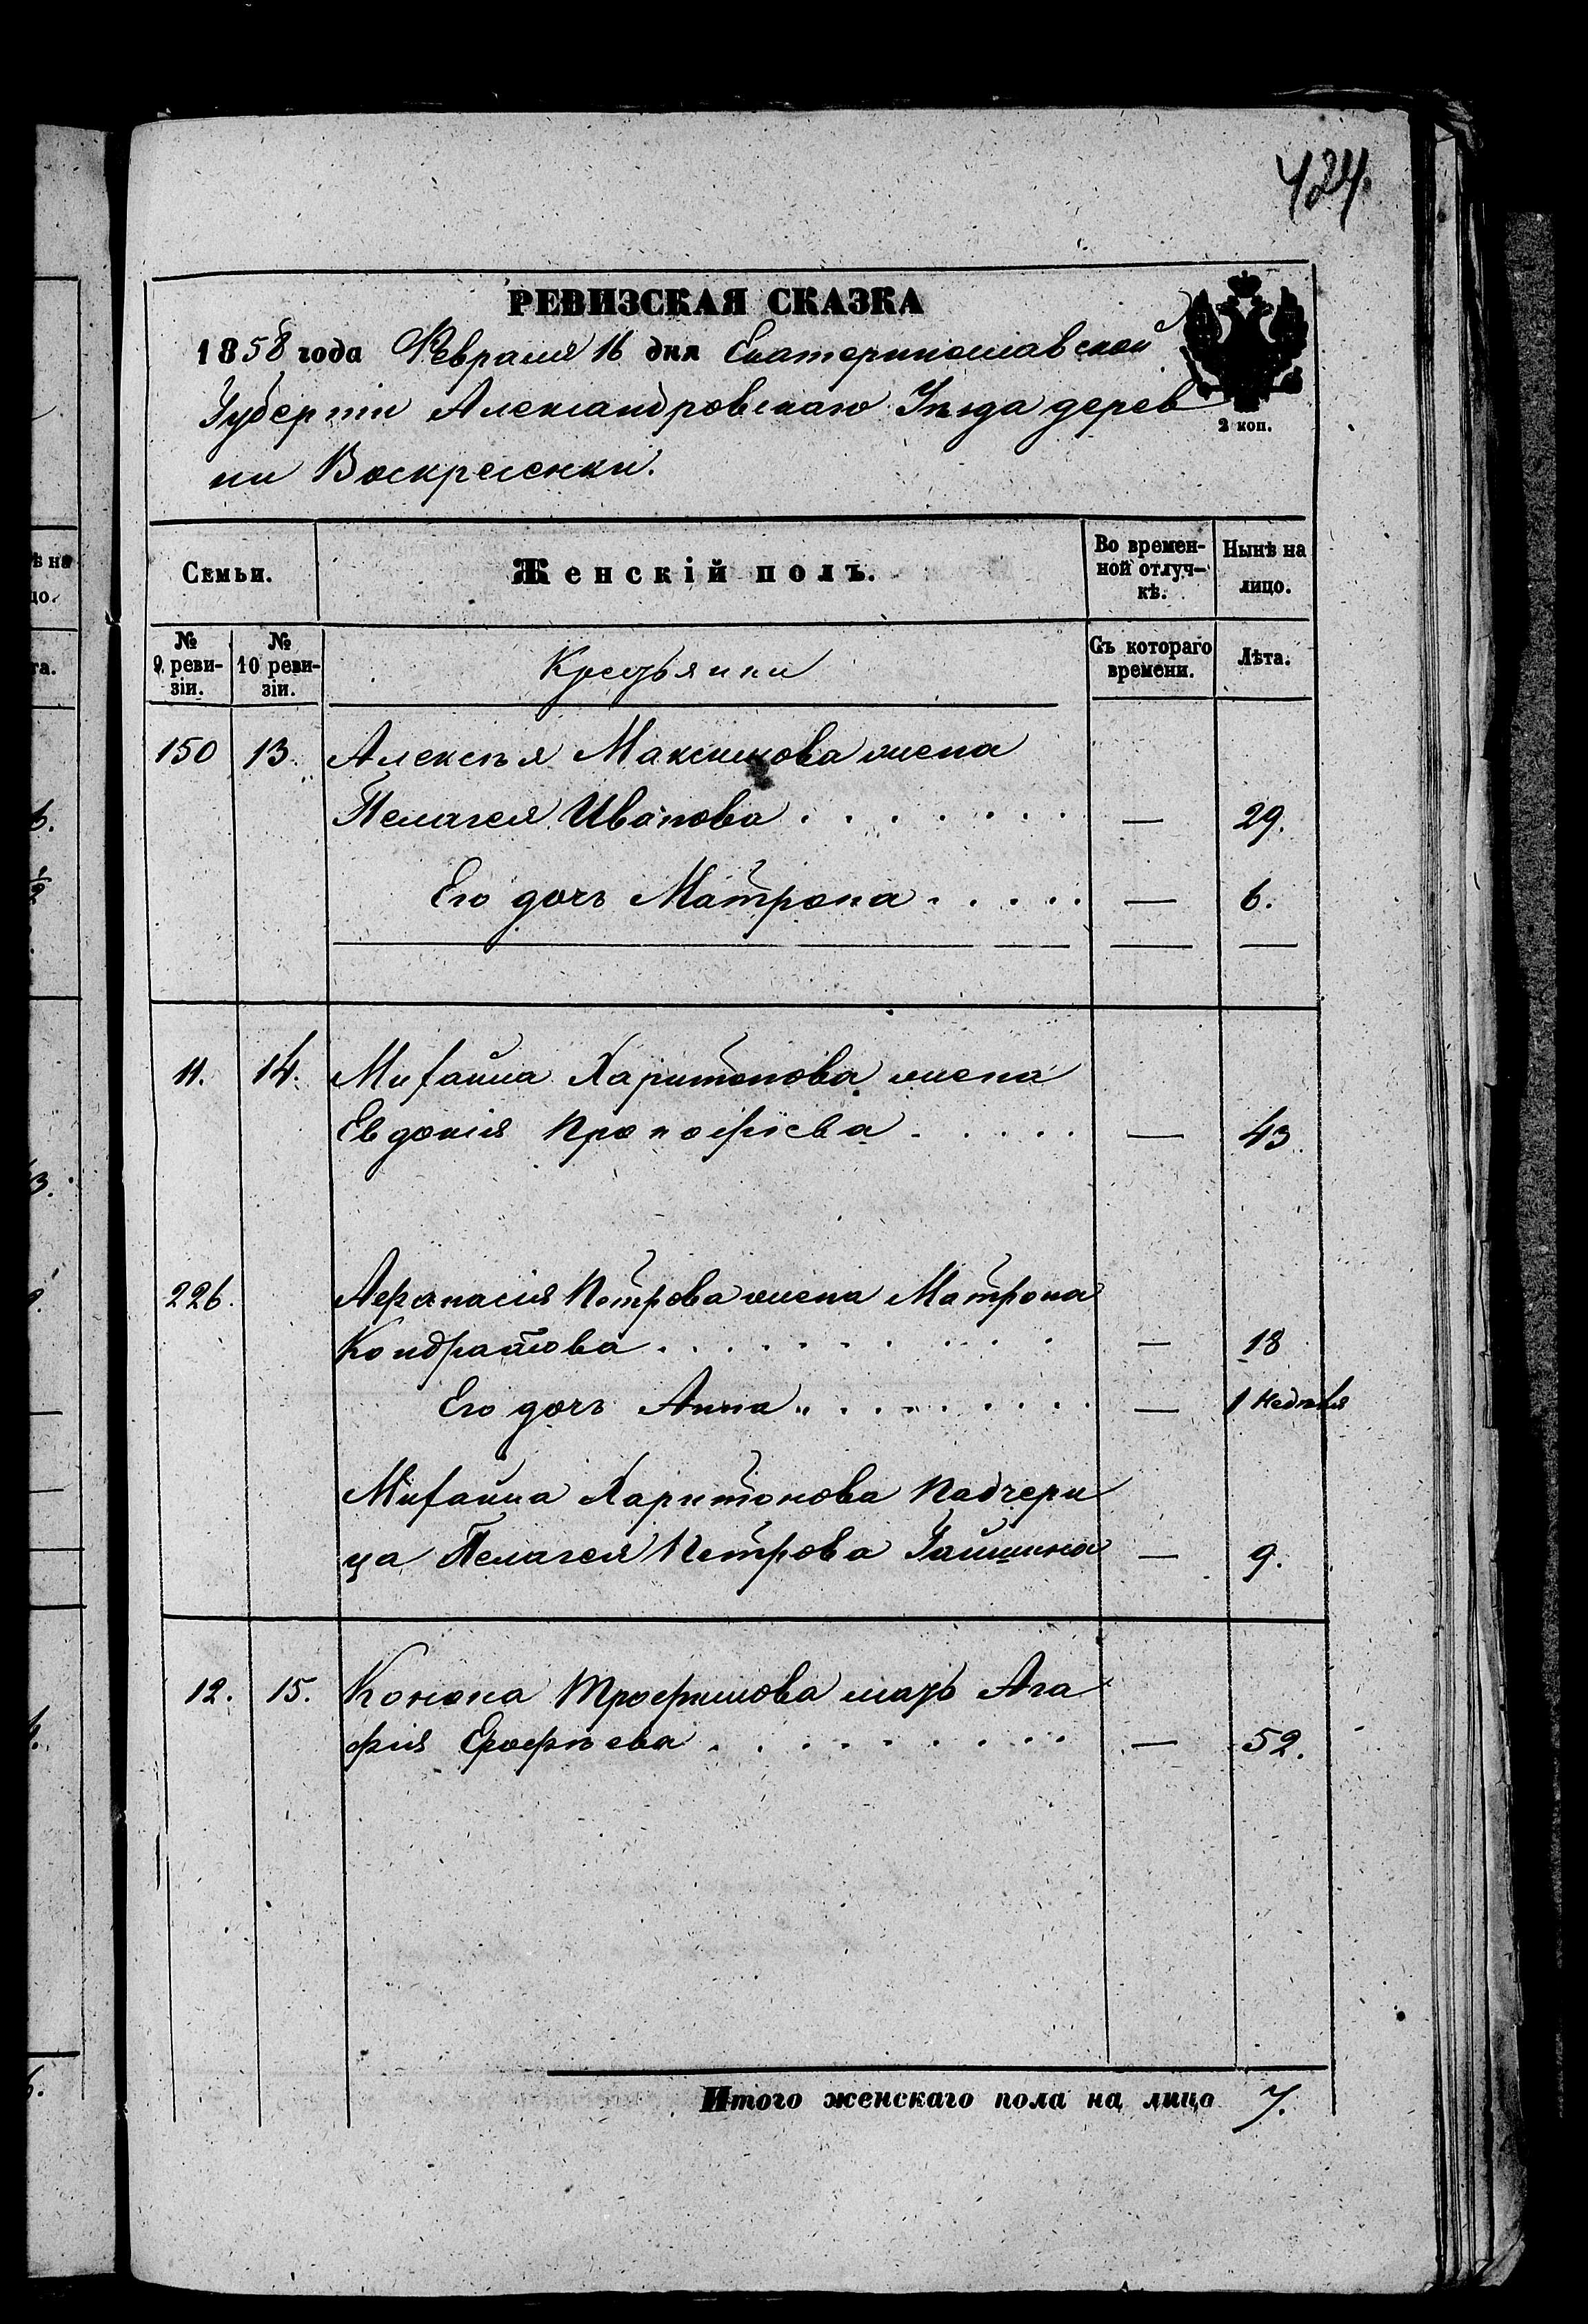 424.
РЕВИЗСКАЯ СКАЗКА
1858 года Февраля 16 дня Екатеринославской
Губерніи Александровскаго Уѣзда дерев
ни Воскресенки.
2 коп.
Семьи.
Женскій полъ.
Во времен-
ной отлуч-
кѣ.
Нынѣ на
лицо.
№
9 реви-
зіи.
№
10 реви-
зіи.
Крестьянки
Съ котораго
времени.
Лѣта.
150 13. Алексѣя Максимова жена
Пелагея Иванова — 29.
Его дочь Матрона — 6.
11. 14. Михайла Харитонова жена
Евдокия Прокофіева — 43
226. Афанасия Петрова жена Матрона
Кондратова — 18
Его дочь Анна — 1 недѣля
Михайла Харитонова Падчери
ца Пелагея Петрова — 9.
12. 15. Конона Трофимова мать Ага
фия Ерофѣева — 52.
Итого женскаго пола на лицо 7.